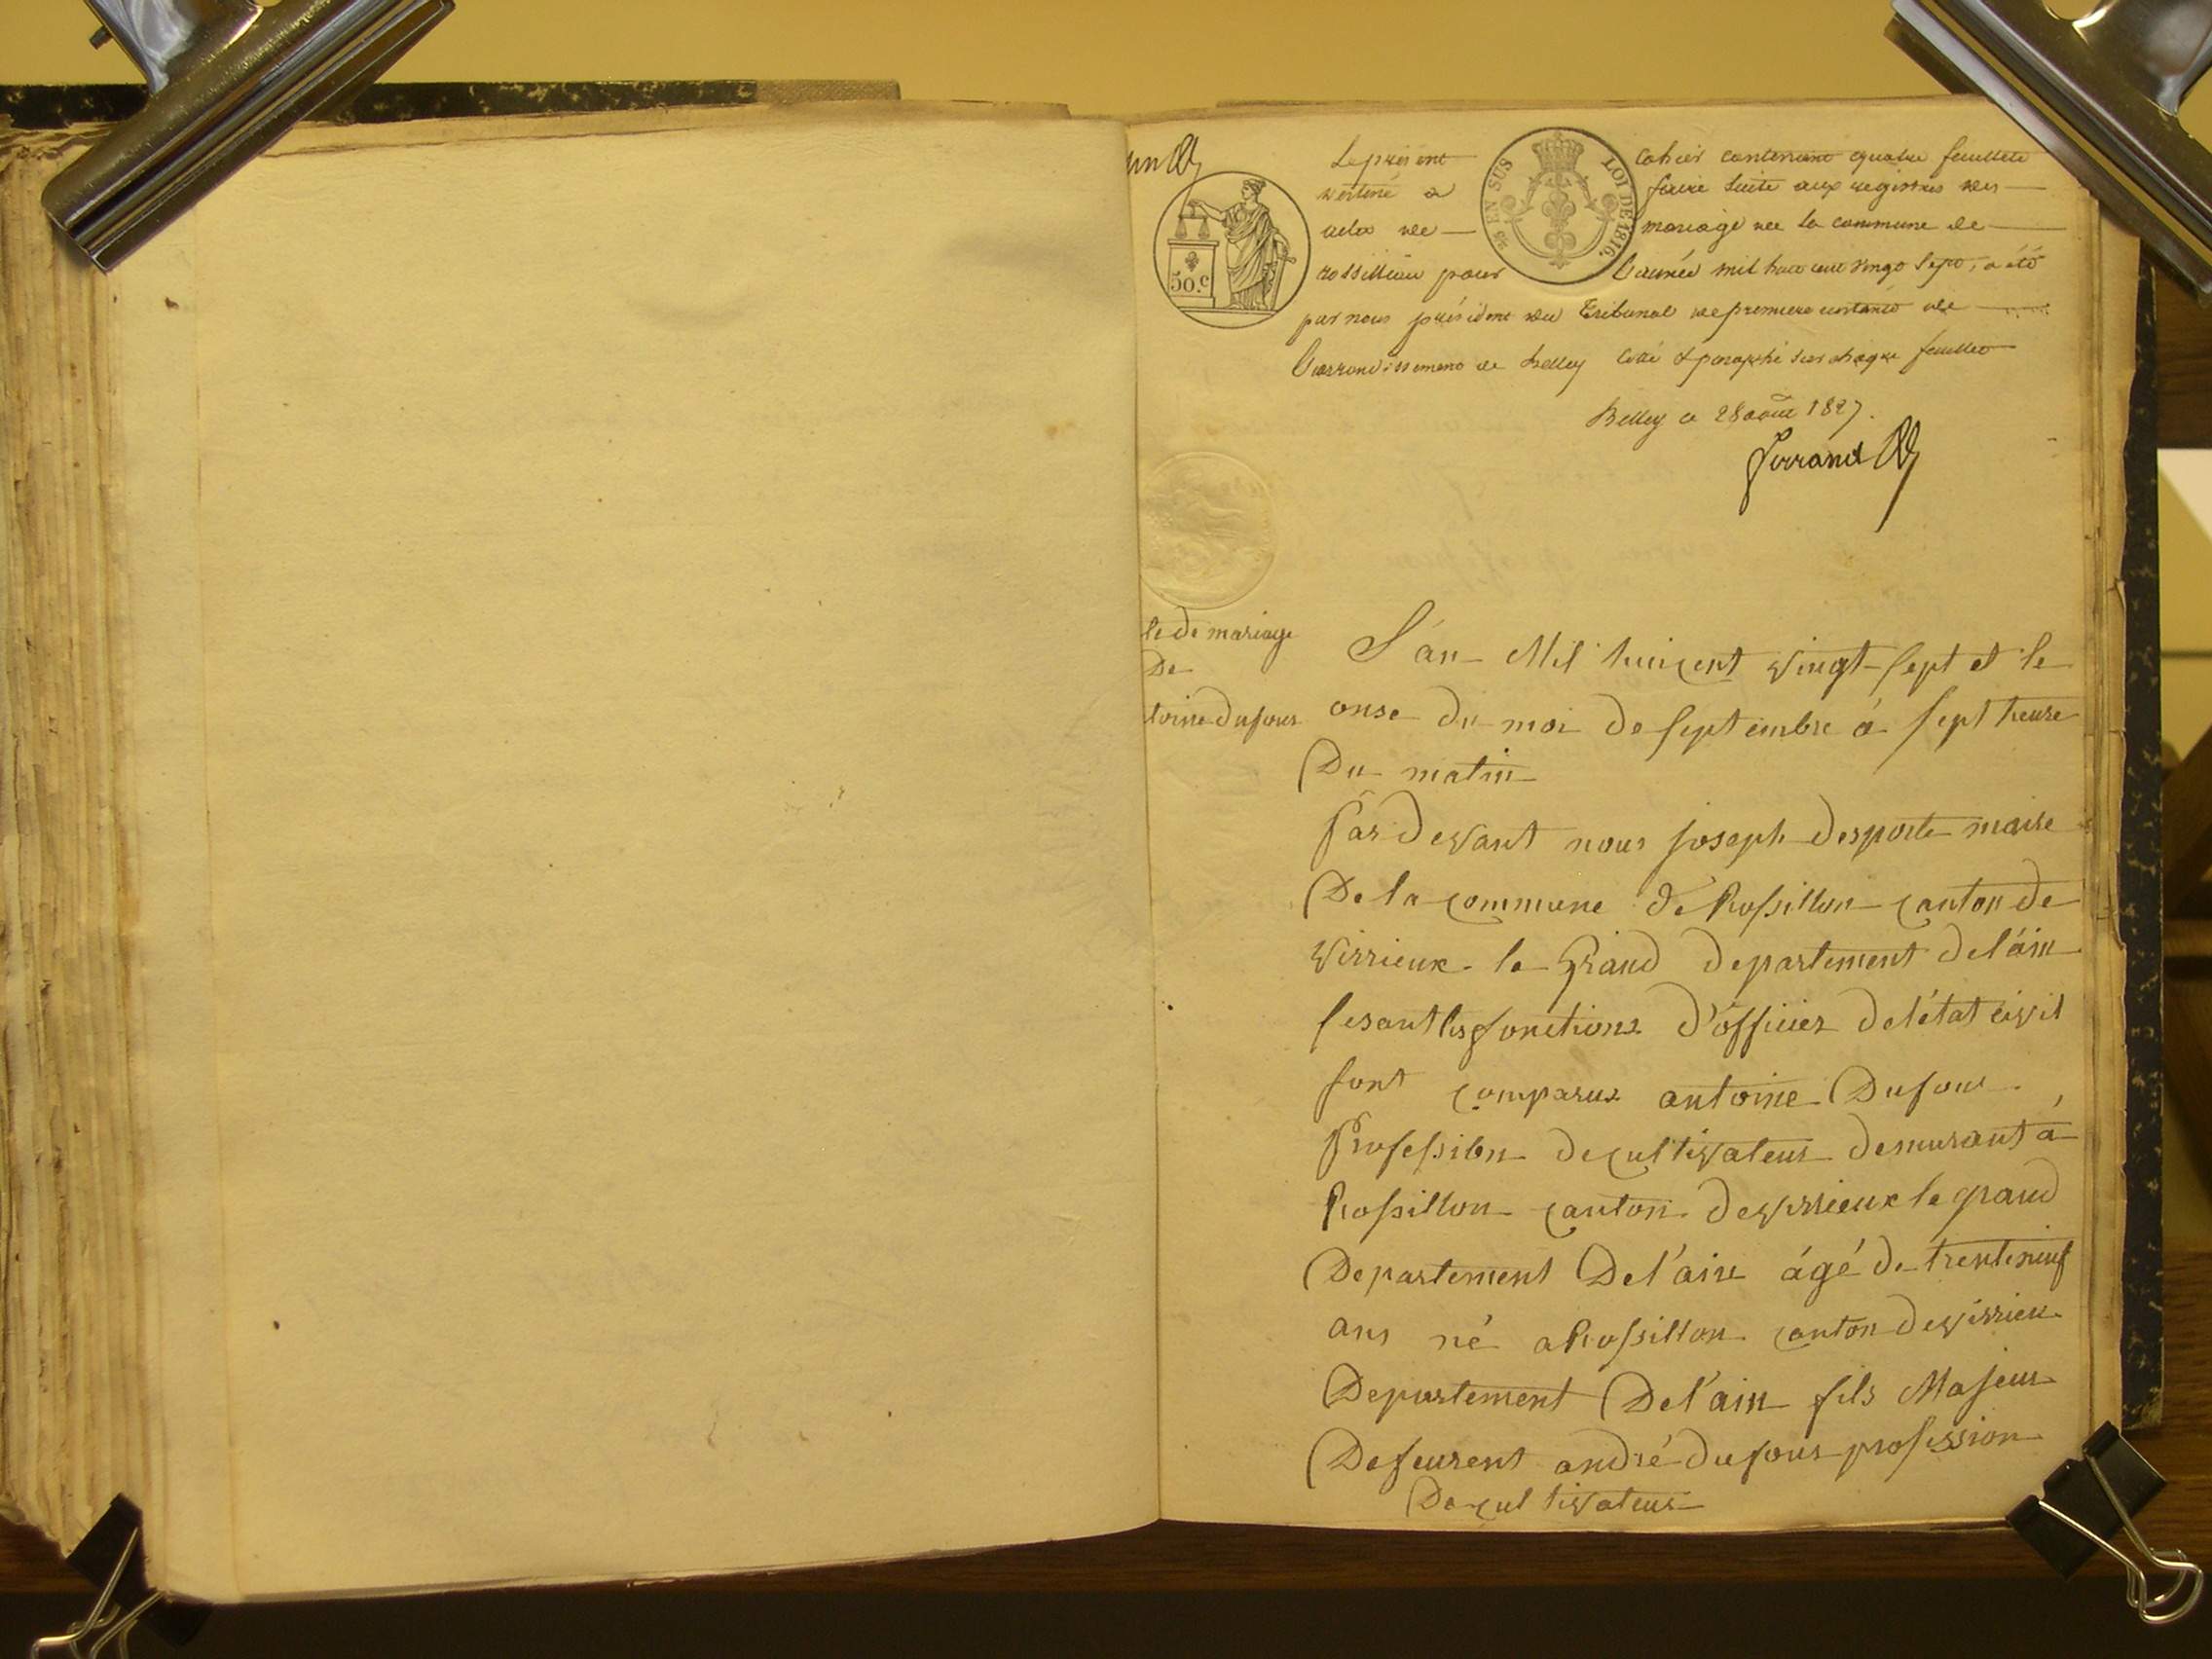 un
Le présent cahier contenant quatre feuillets
destiné a faire suite aux registres des
actes de mariage de la commune de
rossillion pour l'année mil huit cent vingt sept, a été
par nous président du Tribunal de premiere instance de
l'arrondissement de belley cotté & paraphé sur chaque feuillet
Belley ce 28 aout 1827.
Ferrand
50.c
EN SUS LOI DE 1816.
te de mariage
De
toine dufour
L'an Mil huit cent vingt-sept et le
onse du moi de septembre á sept heure
Du matin
Par devant nous joseph desporte maire
De la commune de Rossillon canton de
virrieux le Grand departement de l'áin
fesant les fonctions d'officier de l'état civil
sont comparus antoine Dufour
Profession de cultivateur demurant á
Rossillon canton de virrieux le grand
Departement De l'ain ágé de trente neuf
ans né a Rossillon canton de virrieu
Departement De l'ain fils Majeur
De feurent andré dufour profession
De cultivateur